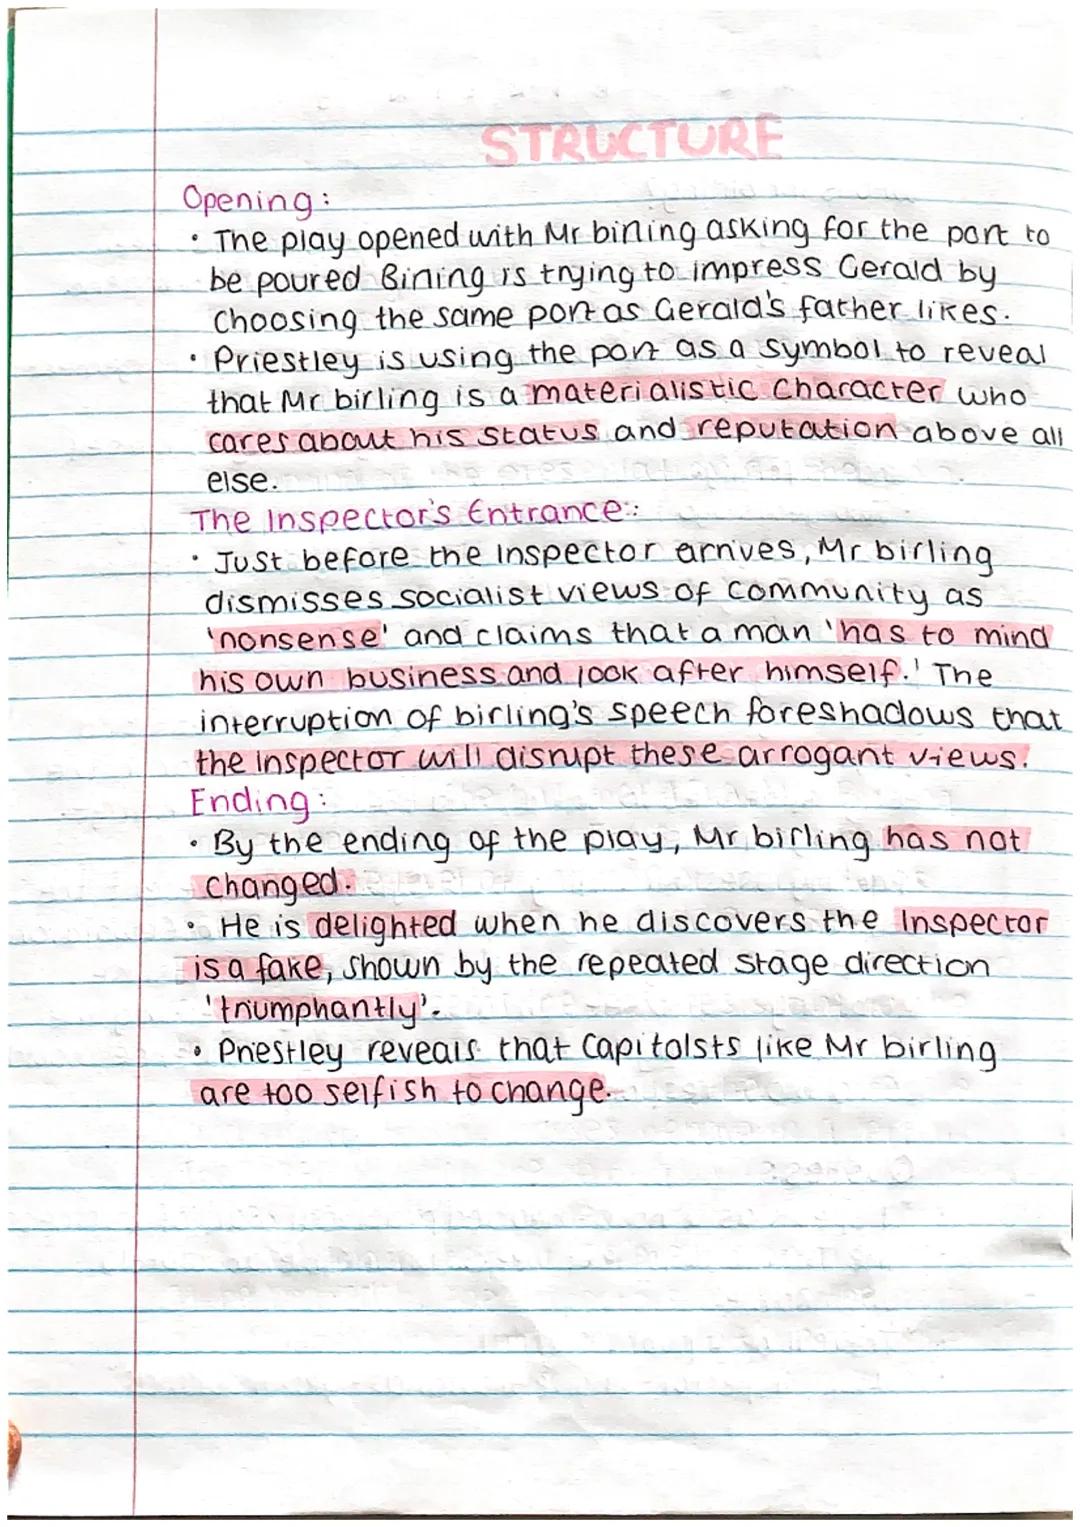 STRUCTURE
Opening:
• The play opened with Mr birling asking for the port to
be poured Birling is trying to impress Gerald by
choosing the same port as Gerald's father likes.
• Priestley is using the port as a symbol to reveal
that Mr birling is a materialistic character who
cares about his status and reputation above all
else.
The Inspector's Entrance:
• Just before the Inspector arrives, Mr birling
dismisses socialist views of community as
'nonsense' and claims that a man 'has to mind
his own business and look after himself.' The
interruption of birling's speech foreshadows that
the inspector will disrupt these arrogant views.
Ending:
• By the ending of the play, Mr birling has not
changed.
• He is delighted when he discovers the Inspector
is a fake, shown by the repeated stage direction
'triumphantly'.
• Priestley reveals that Capitolsts like Mr birling
are too selfish to change.